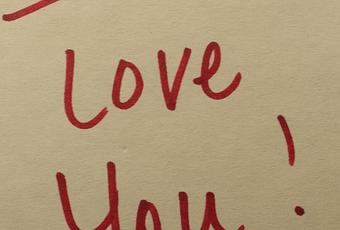 Love
You!